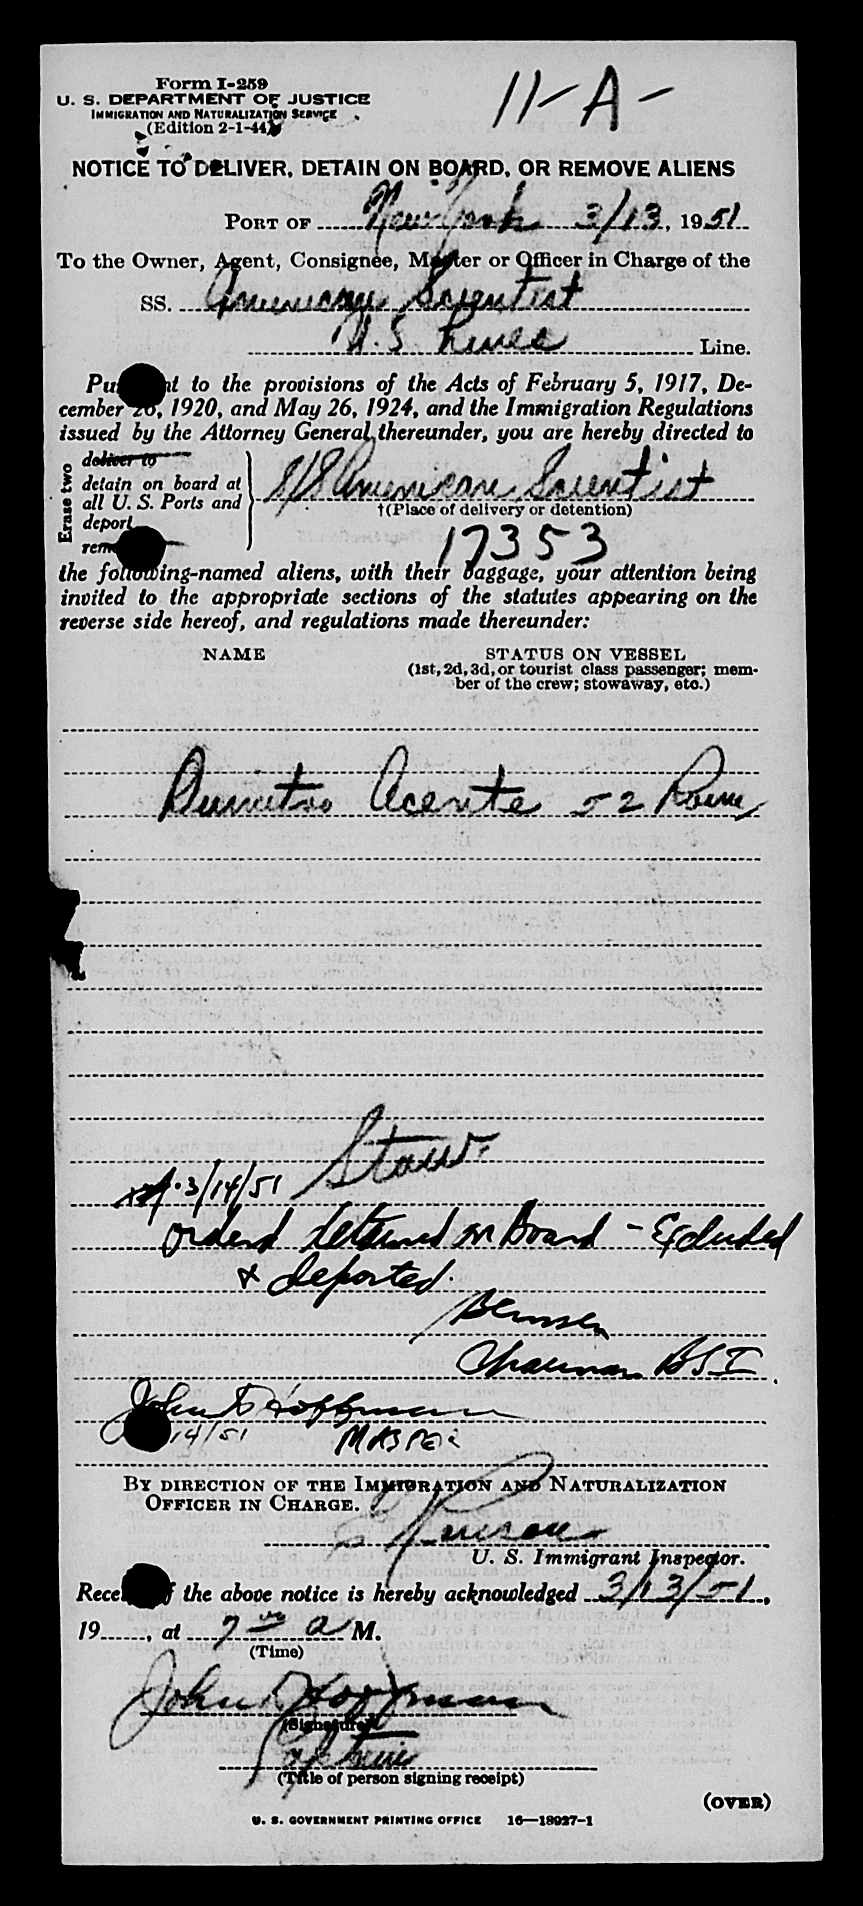 Form I-259
U. S. DEPARTMENT OF JUSTICE
IMMIGRATION AND NATURALIZATION SERVICE
(Edition 2-1-44)
11-A-
NOTICE TO DELIVER, DETAIN ON BOARD, OR REMOVE ALIENS
PORT OF New York 3/13, 1951
To the Owner, Agent, Consignee, Master or Officer in Charge of the
SS. American Scientist
U.S. Lines Line.
Pursuant to the provisions of the Acts of February 5, 1917, De-
cember 26, 1920, and May 26, 1924, and the Immigration Regulations
issued by the Attorney General thereunder, you are hereby directed to
Erase two
deliver to
detain on board at
all U. S. Ports and
deport
remove
S/S American Scientist
†(Place of delivery or detention)
17353
the following-named aliens, with their baggage, your attention being
invited to the appropriate sections of the statutes appearing on the
reverse side hereof, and regulations made thereunder:
NAME
STATUS ON VESSEL
(1st, 2d, 3d, or tourist class passenger; mem-
ber of the crew; stowaway, etc.)
Acente 52
Stow.
3/14/51
orderd detained on Board - Excluded
& deported.
Chairman BSI
John D Hoffman
14/51 MASTER
BY DIRECTION OF THE IMMIGRATION AND NATURALIZATION
OFFICER IN CHARGE.
U. S. Immigrant Inspector.
Receipt of the above notice is hereby acknowledged 3/13/51,
19, at 7 00 a M.
(Time)
John D Hoffman
(Signature)
Captain
(Title of person signing receipt)
(OVER)
U. S. GOVERNMENT PRINTING OFFICE 16—18927-1